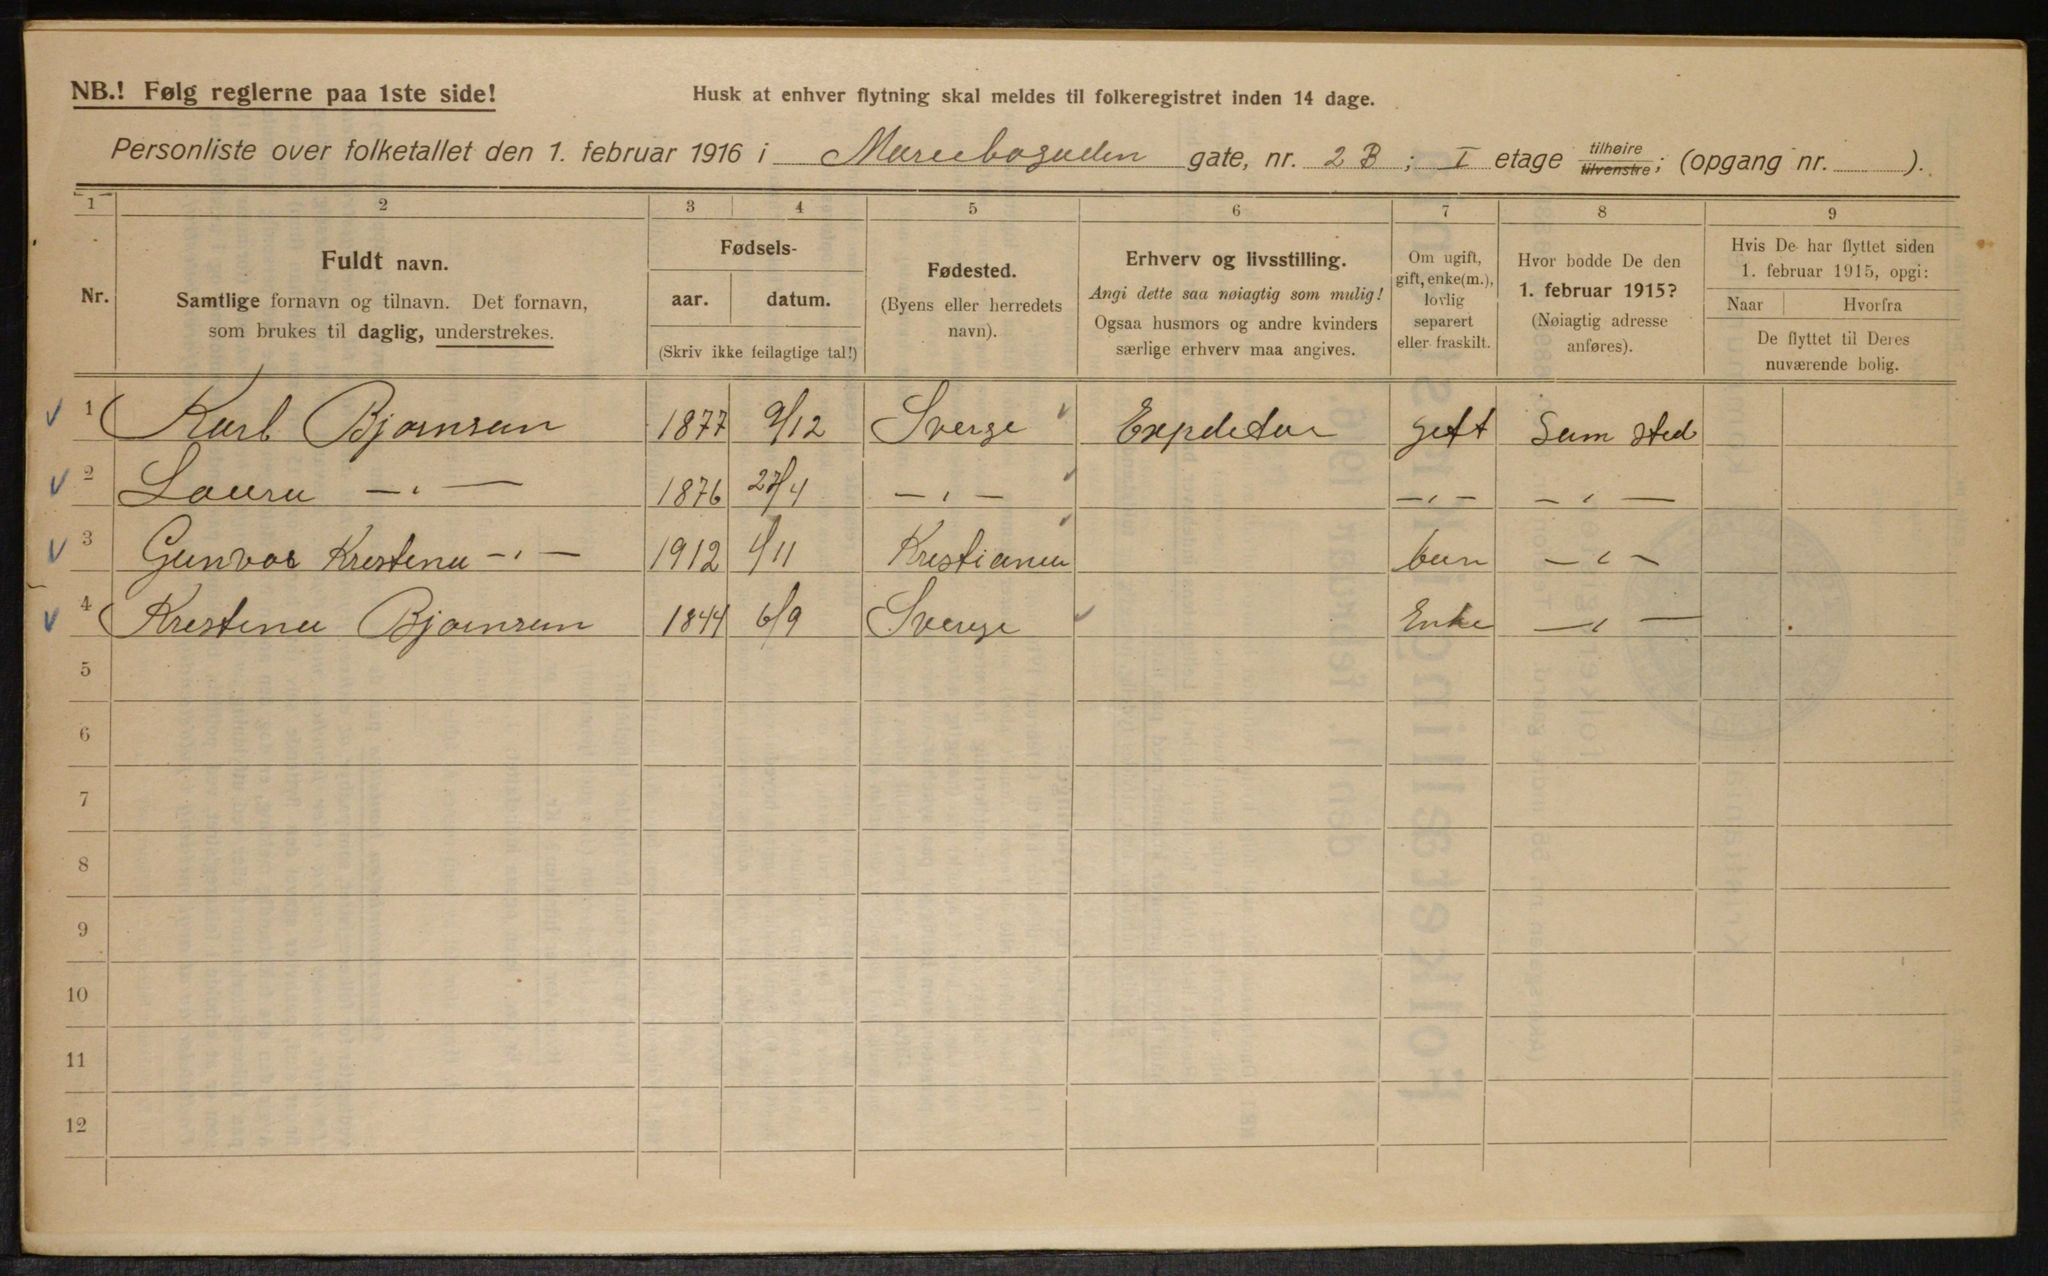 NB.! Følg reglerne paa 1ste side!
Husk at enhver flytning skal meldes til folkeregistret inden 14 dage.
Personliste over folketallet den 1. februar 1916 i Marebogaden gate, nr. 2 B ; I etage tilhøire tilvenstre; (opgang nr. ).
1 2 3 4 5 6 7 8 9
Nr.
Fuldt navn.
Samtlige fornavn og tilnavn. Det fornavn,
som brukes til daglig, understrekes.
Fødsels-
aar. datum.
(Skriv ikke feilagtige tal!)
Fødested.
(Byens eller herredets
navn).
Erhverv og livsstilling.
Angi dette saa nøiagtig som mulig!
Ogsaa husmors og andre kvinders
særlige erhverv maa angives.
Om ugift,
gift, enke(m.),
lovlig
separert
eller fraskilt.
Hvor bodde De den
1. februar 1915?
(Nøiagtig adresse
anføres).
Hvis De har flyttet siden
1. februar 1915, opgi:
Naar Hvorfra
De flyttet til Deres
nuværende bolig.
1 Karl Bjørnsen 1877 9/12 Sverge Expeditør gift Sam sted
2 Laura —〃— 1876 27/4 —〃— —〃— —〃—
3 Gunvor Krestena —〃— 1912 1/11 Krestiania barn —〃—
4 Krestena Bjørnsen 1844 6/9 Sverge Enke —〃—
5
6
7
8
9
10
11
12